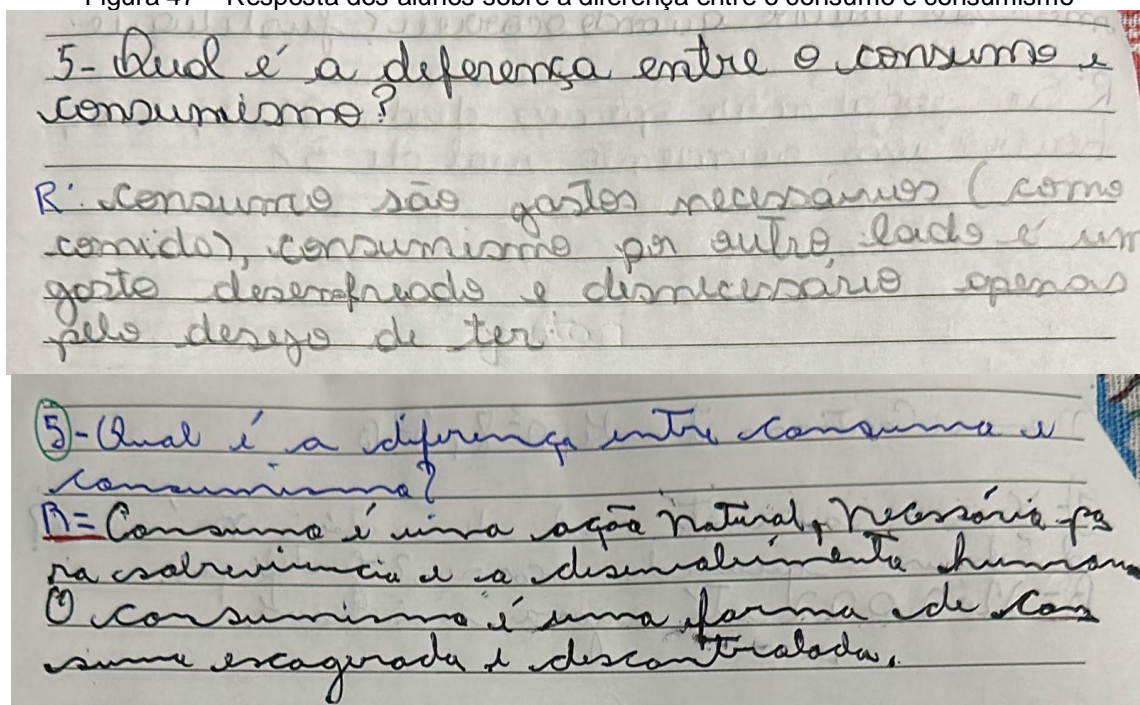 Figura 47 – Resposta dos alunos sobre a diferença entre o consumo e consumismo
5- Qual é a diferença entre o consumo e
consumismo?
R: consumo são gastos necessários (como
comida), consumismo por outro lado é um
gasto desenfreado e desnecessário apenas
pelo desejo de ter
5- Qual é a diferença entre consumo e
consumismo?
R= Consumo é uma ação natural, necessária pa
ra a sobrevivencia e o desenvolvimento humano
O consumismo é uma forma de con
sumo escagerado e descontrolado.